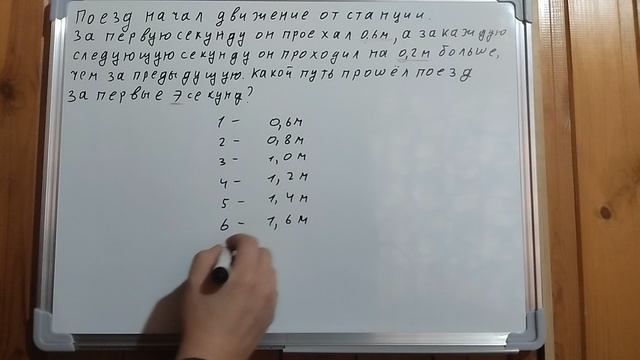 Поезд начал движение от станции.
За первую секунду он проехал 0,6м, а за каждую
следующую секунду он проходил на 0,2м больше,
чем за предыдущую. Какой путь прошёл поезд
за первые 7 секунд?
1 - 0,6м
2 - 0,8м
3 - 1,0м
4 - 1,2м
5 - 1,4м
6 - 1,6м